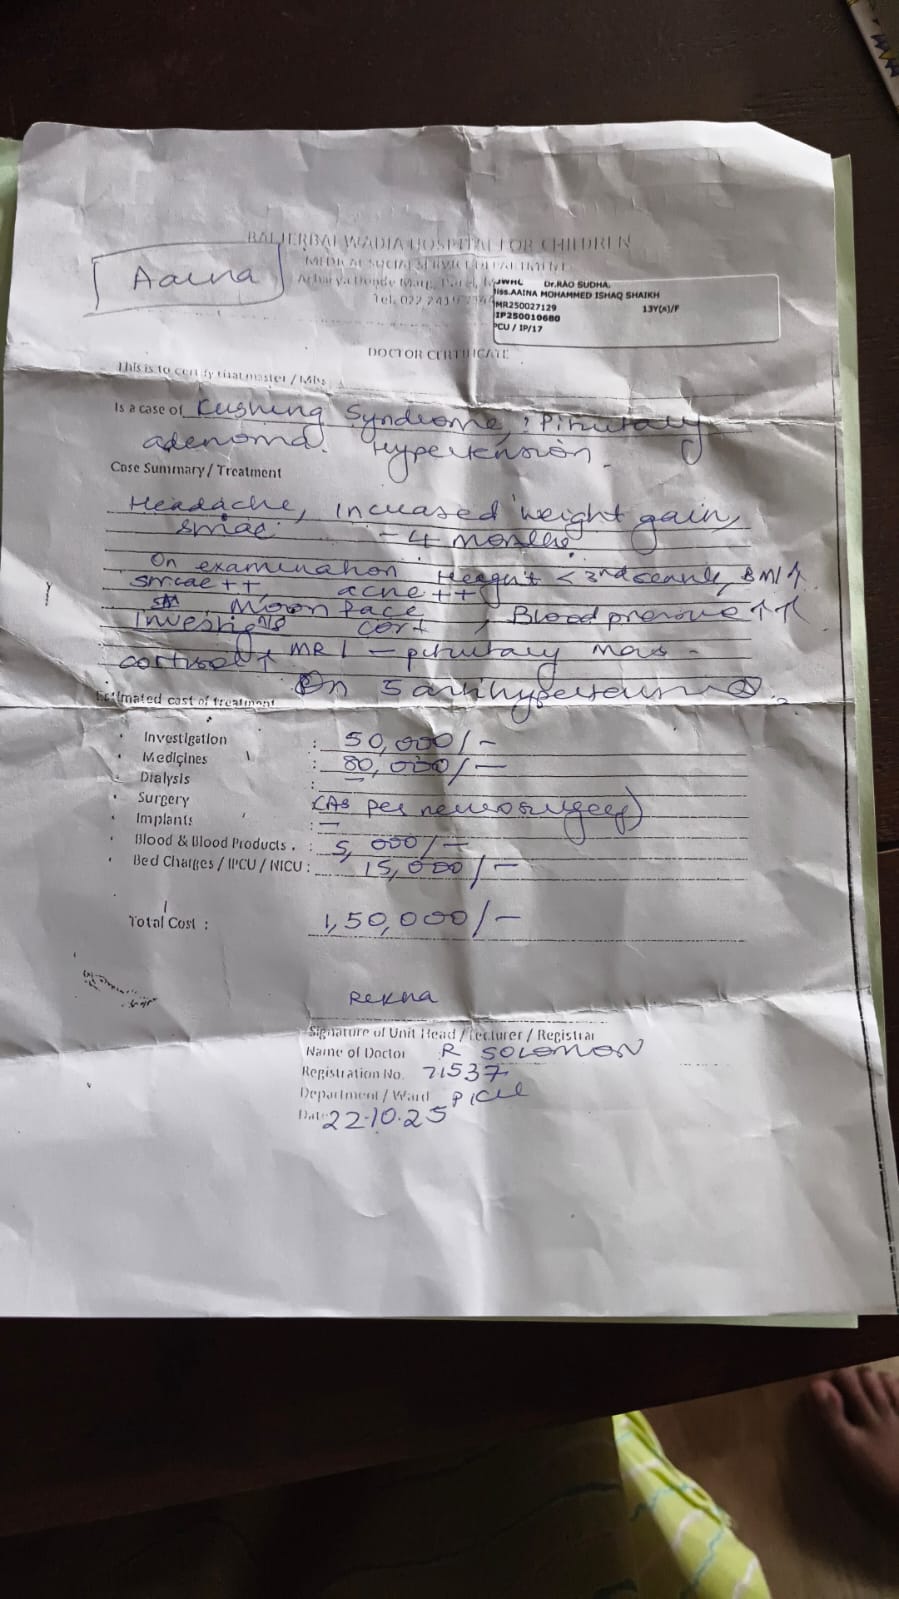 BAI JERBAI WADIA HOSPITAL FOR CHILDREN
MEDICAL SOCIAL SERVICE DEPARTMENT
Aaina
Acharya Donde Marg, Parel,
Tel. 022 2419
JWHC Dr.RAO SUDHA.
Miss.AAINA MOHAMMED ISHAQ SHAIKH
MR250027129 13Y(s)/F
IP250010680
PCU / IP/17
DOCTOR CERTIFICATE
This is to certify that master / Miss
Is a case of Kushing Syndrome, ? Pitutary
adenoma. Hypertension.
Case Summary / Treatment
Headache, increased weight gain,
striae - 4 months.
On examination Height < 3rd centile, BMI ↑
striae ++ acne ++
Moon face, Blood pressure ↑↑
Investigns cort
cortisol ↑ MRI - pitutary Mass -
On 5 antihypertensives
Estimated cost of treatment
Investigation : 50,000/-
Medicines : 80,000/-
Dialysis : —
Surgery (As per neurosurgery)
Implants : —
Blood & Blood Products . : 5,000/-
Bed Charges / IPCU / NICU : 15,000/-
Total Cost : 1,50,000/-
Rekha
Signature of Unit Head / Lecturer / Registrar
Name of Doctor R SOLOMON
Registration No. 71537
Department / Ward PICU
Date 22.10.25